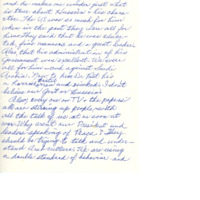 and he makes me wonder just what
is true about Hussein + his char-
acter. The U. S. was so much for him
when in the past they were all for
him; they said that he was dedica-
ted, fine manners and a great leader.
Also that his administration of his
Government was excellent. We were
all for him - and against
Arabia. Now to him is that he's
a horrible and wicked; I don't
believe our Govt. or Hussein's.
Also, every one on TV + the papers
all are stirring up people with
all the talk of us at so soon at
war. Why aren't our President and
leaders speaking of Peace? They
should be trying to talk and under-
stand Arab culture. We are using
a double standard of behavior and